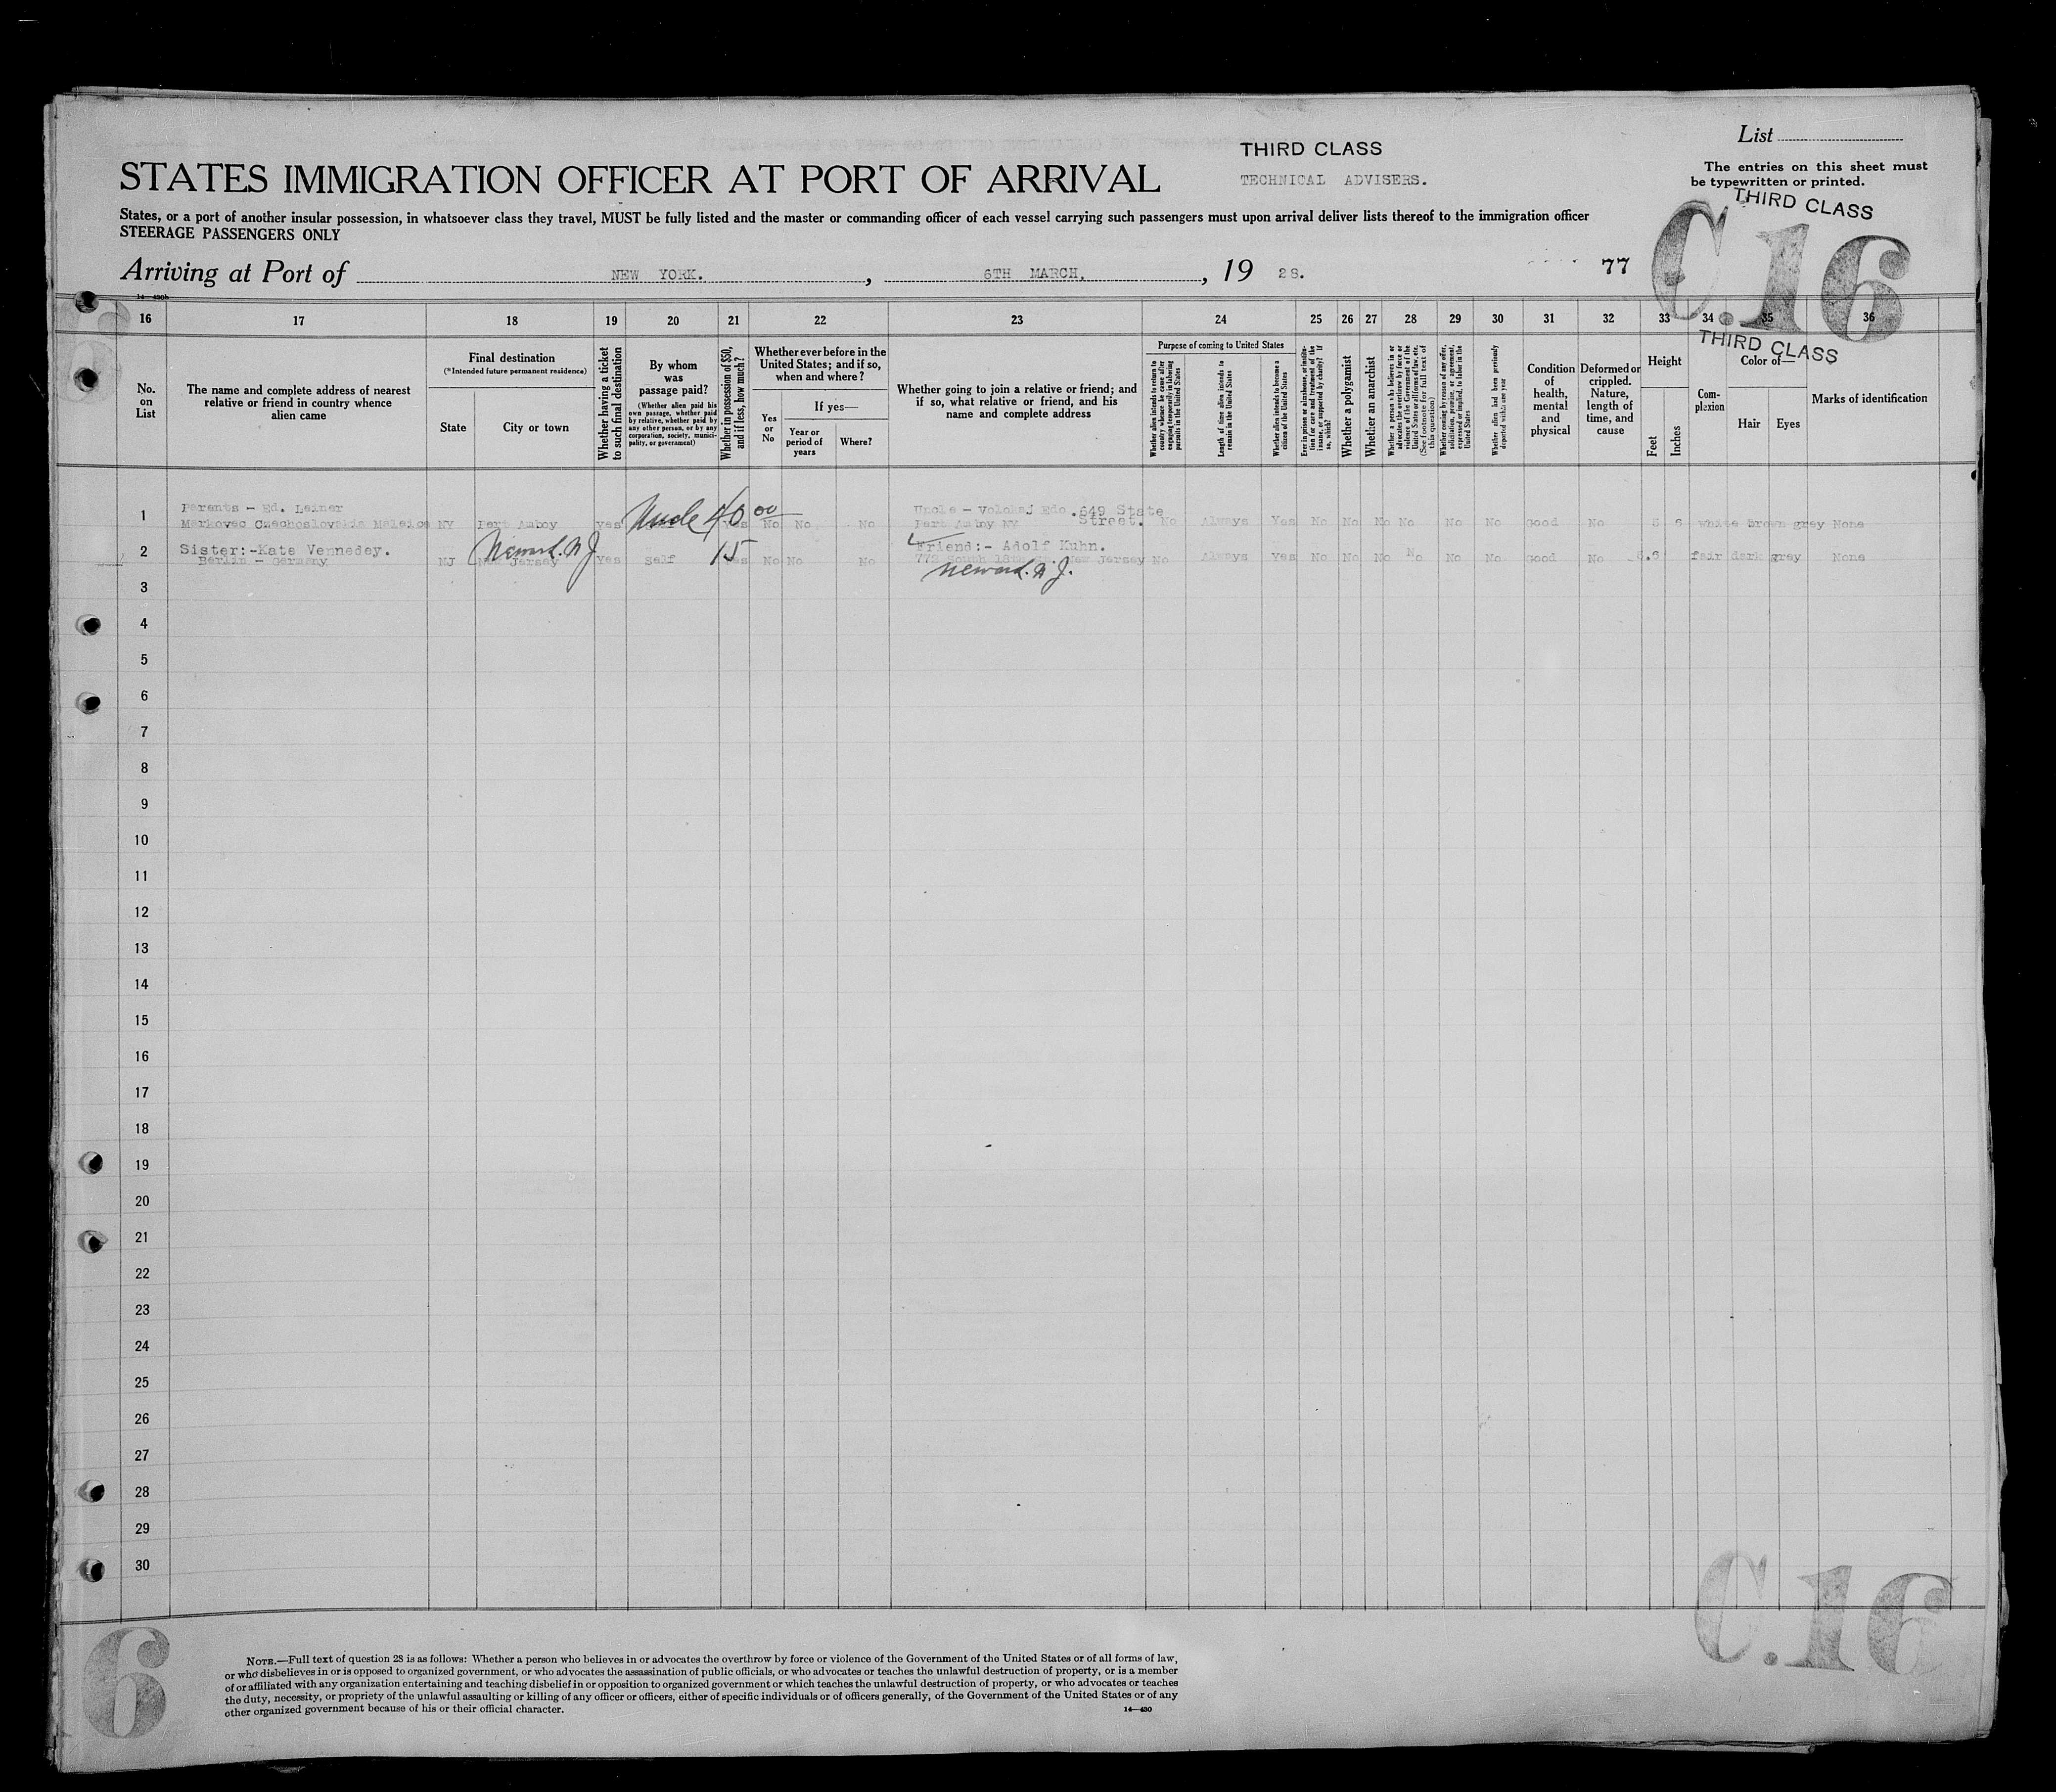 List
THIRD CLASS
STATES IMMIGRATION OFFICER AT PORT OF ARRIVAL
TECHNICAL ADVISERS.
The entries on this sheet must
be typewritten or printed.
THIRD CLASS
States, or a port of another insular possession, in whatsoever class they travel, MUST be fully listed and the master or commanding officer of each vessel carrying such passengers must upon arrival deliver lists thereof to the immigration officer
STEERAGE PASSENGERS ONLY
C.16
Arriving at Port of NEW YORK. , 6TH MARCH, , 19 28.
77
14—430b
16 17 18 19 20 21 22 23 24 25 26 27 28 29 30 31 32 33 34 35 36
THIRD CLASS
No.
on
List
The name and complete address of nearest
relative or friend in country whence
alien came
Final destination
(*Intended future permanent residence)
State
City or town
Whether having a ticket
to such final destination
By whom
was
passage paid?
(Whether alien paid his
own passage, whether paid
by relative, whether paid by
any other person, or by any
corporation, society, munici-
pality, or government)
Whether in possession of $50,
and if less, how much?
Whether ever before in the
United States; and if so,
when and where?
Yes
or
No
If yes—
Year or
period of
years
Where?
Whether going to join a relative or friend; and
if so, what relative or friend, and his
name and complete address
Purpose of coming to United States
Whether alien intends to return to
country whence he came after
engaging temporarily in laboring
pursuits in the United States
Length of time alien intends to
remain in the United States
Whether alien intends to become a
citizen of the United States
Ever in prison or almshouse, or institu-
tion for care and treatment of the
insane, or supported by charity? If
so, which?
Whether a polygamist
Whether an anarchist
Whether a person who believes in or
advocates the overthrow by force or
violence of the Government of the
United States or all forms of law, etc.
(See footnote for full text of
this question)
Whether coming by reason of any offer,
solicitation, promise, or agreement,
expressed or implied, to labor in the
United States
Whether alien had been previously
deported within one year
Condition
of
health,
mental
and
physical
Deformed or
crippled.
Nature,
length of
time, and
cause
Height
Feet
Inches
Com-
plexion
Color of—
Hair
Eyes
Marks of identification
Parents - Ed. Leiner
Uncle - Volokaj Edo .649 State
1 Markovec Czechoslovakia NY Pert Amboy yes Uncle 40 00 Yes No No No Pert Amboy NY Street. No Always Yes No No No No No No Good No 5 6 white brown grey None
Sister:-Kate Vennedey.
Newark. N J
15
Friend:- Adolf Kuhn.
2 Berlin - Germany NJ New Jersey Yes Self Yes No No No New Jersey No Always Yes No No No No No No Good No 5.6 fair dark grey None
Newark. N J.
3
4
5
6
7
8
9
10
11
12
13
14
15
16
17
18
19
20
21
22
23
24
25
26
27
28
29
30
C.16
6
NOTE.—Full text of question 28 is as follows: Whether a person who believes in or advocates the overthrow by force or violence of the Government of the United States or of all forms of law,
or who disbelieves in or is opposed to organized government, or who advocates the assassination of public officials, or who advocates or teaches the unlawful destruction of property, or is a member
of or affiliated with any organization entertaining and teaching disbelief in or opposition to organized government or which teaches the unlawful destruction of property, or who advocates or teaches
the duty, necessity, or propriety of the unlawful assaulting or killing of any officer or officers, either of specific individuals or of officers generally, of the Government of the United States or of any
other organized government because of his or their official character.
14—430